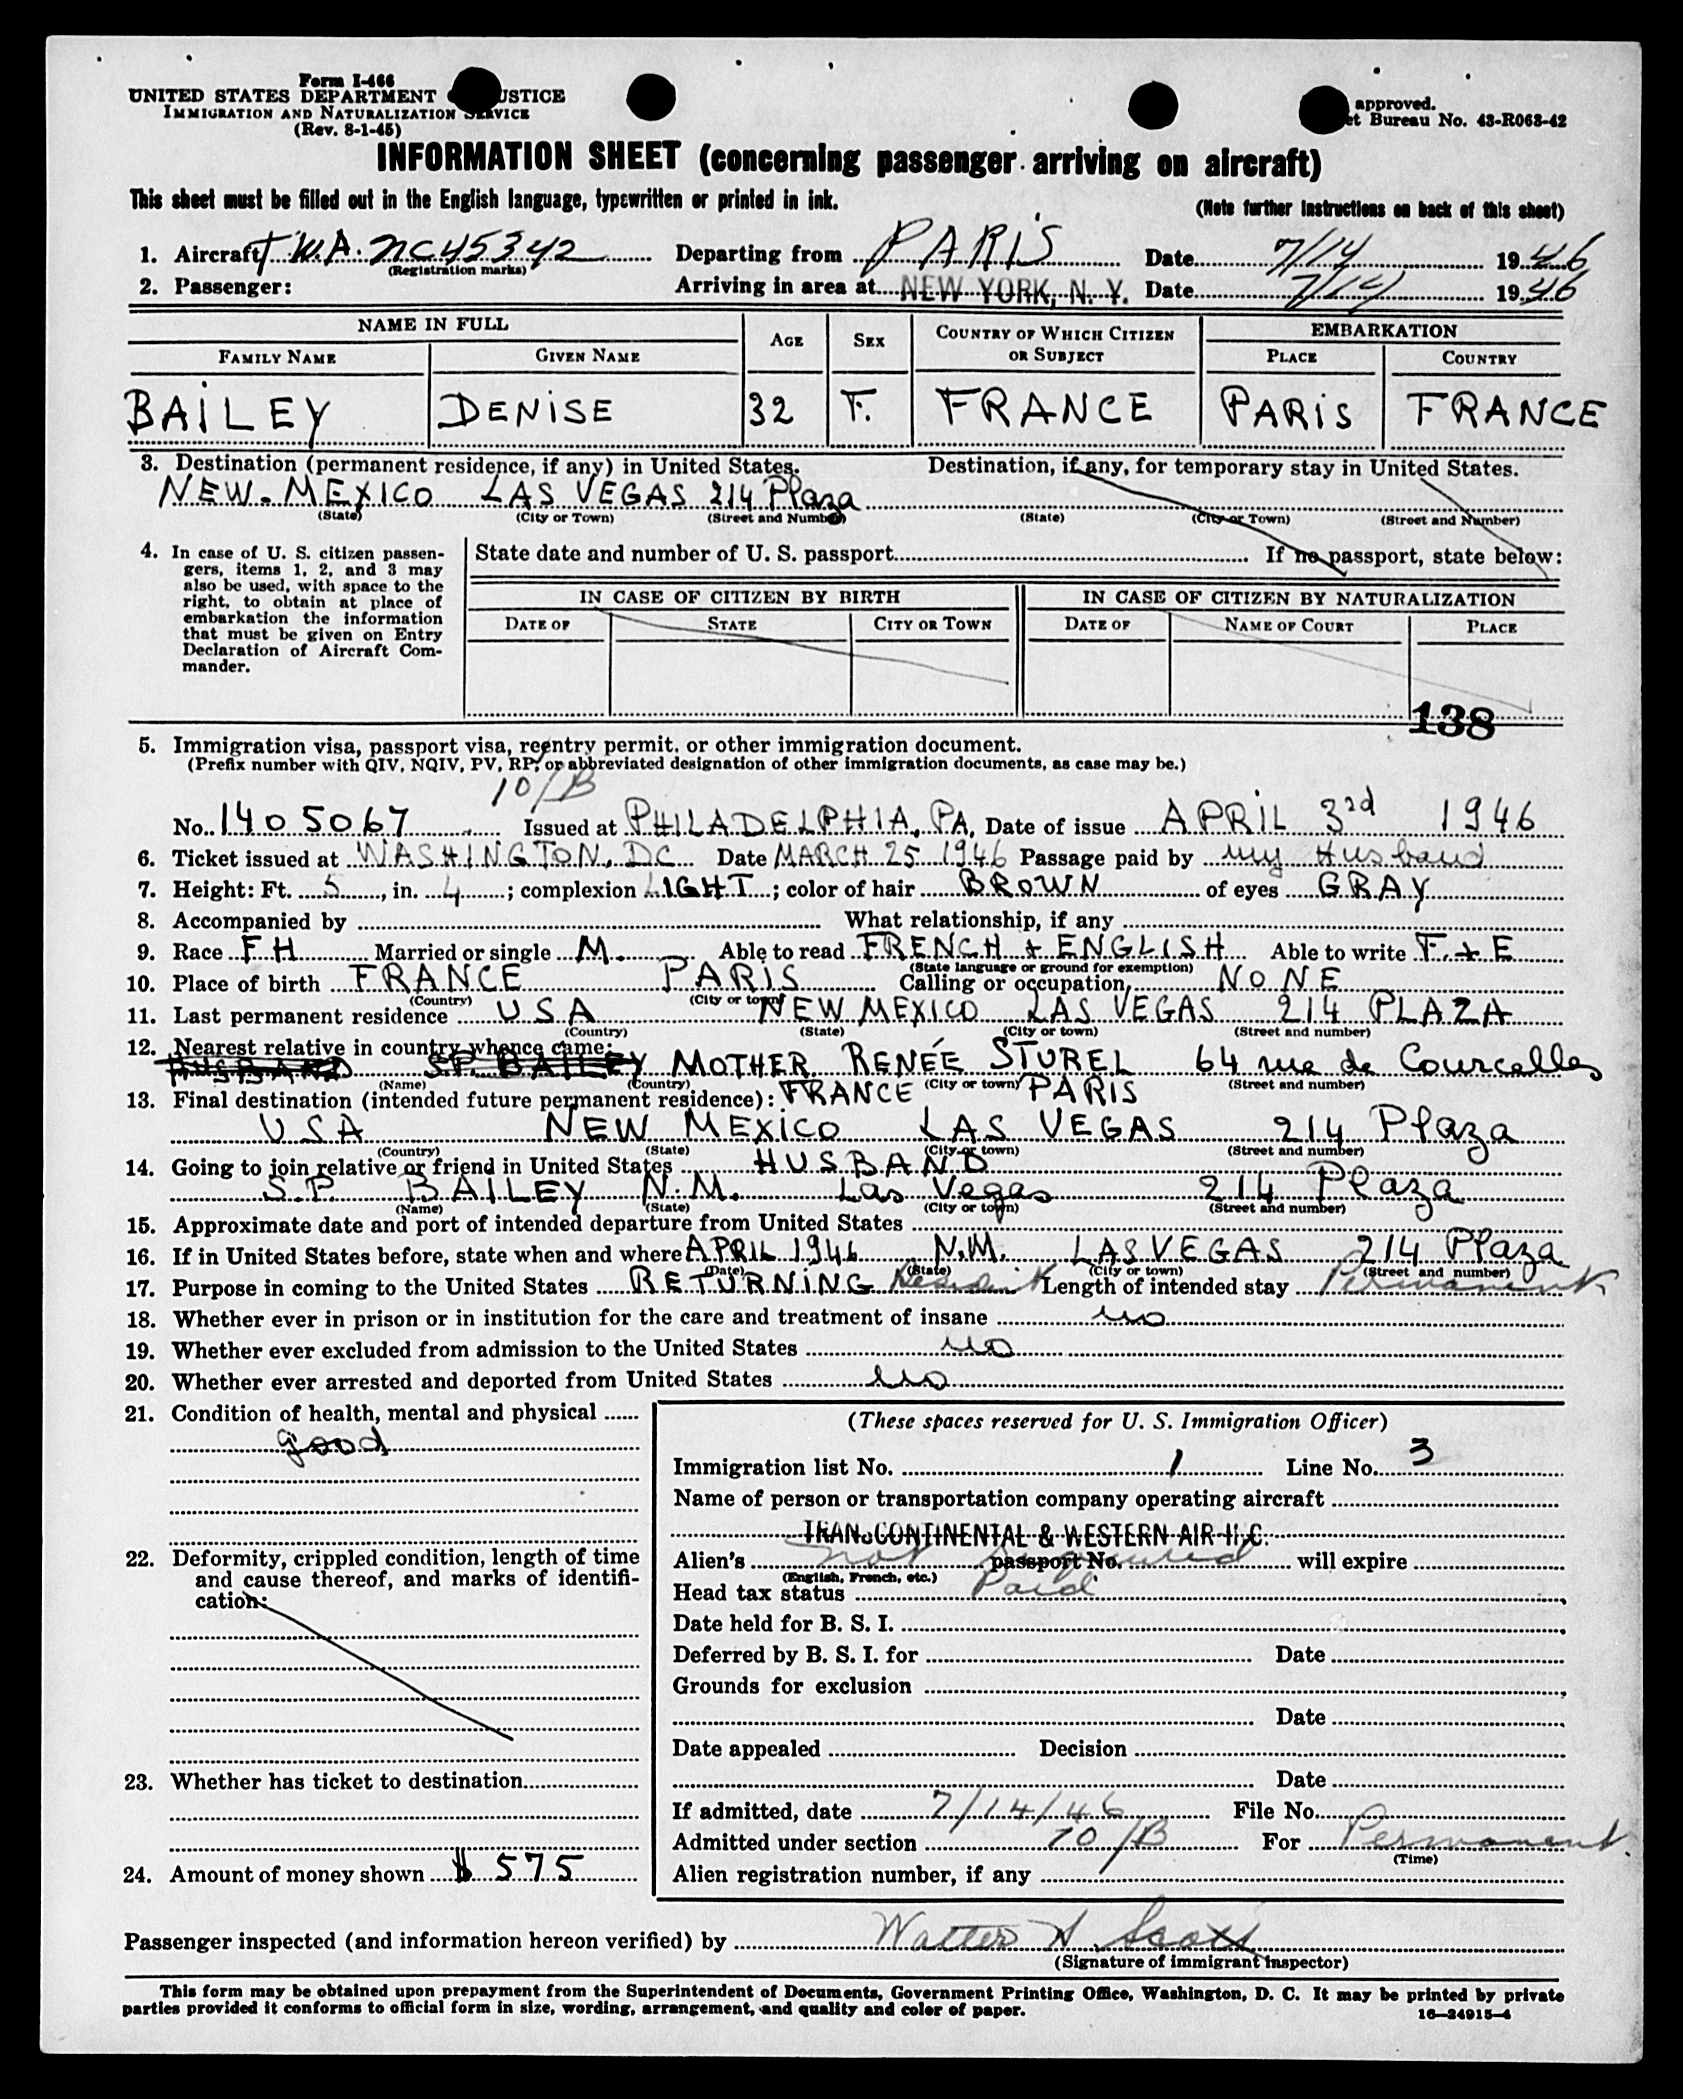 Form I-466
UNITED STATES DEPARTMENT JUSTICE
IMMIGRATION AND NATURALIZATION SERVICE
(Rev. 8-1-45)
approved.
Bureau No. 43-R063-42
INFORMATION SHEET (concerning passenger arriving on aircraft)
This sheet must be filled out in the English language, typewritten or printed in ink.
(Note further instructions on back of this sheet)
1. Aircraft T.W.A. NC45342 Departing from PARIS Date 7/14 1946
(Registration marks)
2. Passenger: Arriving in area at NEW YORK, N. Y. Date 7/14 1946
NAME IN FULL AGE SEX COUNTRY OF WHICH CITIZEN OR SUBJECT EMBARKATION
FAMILY NAME GIVEN NAME PLACE COUNTRY
BAILEY DENISE 32 F. FRANCE PARIS FRANCE
3. Destination (permanent residence, if any) in United States. Destination, if any, for temporary stay in United States.
NEW.MEXICO LAS VEGAS 214 Plaza
(State) (City or Town) (Street and Number) (State) (City or Town) (Street and Number)
4. In case of U. S. citizen passen-
gers, items 1, 2, and 3 may
also be used, with space to the
right, to obtain at place of
embarkation the information
that must be given on Entry
Declaration of Aircraft Com-
mander.
State date and number of U. S. passport If no passport, state below:
IN CASE OF CITIZEN BY BIRTH IN CASE OF CITIZEN BY NATURALIZATION
DATE OF STATE CITY OR TOWN DATE OF NAME OF COURT PLACE
138
5. Immigration visa, passport visa, reentry permit, or other immigration document.
(Prefix number with QIV, NQIV, PV, RP, or abbreviated designation of other immigration documents, as case may be.)
10/B
No. 1405067 Issued at PHILADELPHIA, PA, Date of issue APRIL 3rd 1946
6. Ticket issued at WASHINGTON, DC Date MARCH 25 1946 Passage paid by my Husband
7. Height: Ft. 5, in. 4; complexion LIGHT; color of hair BROWN of eyes GRAY
8. Accompanied by What relationship, if any
9. Race F H Married or single M. Able to read FRENCH + ENGLISH Able to write F. + E
(State language or ground for exemption)
10. Place of birth FRANCE PARIS Calling or occupation NONE
(Country) (City or town)
11. Last permanent residence USA NEW MEXICO LAS VEGAS 214 PLAZA
(Country) (State) (City or town) (Street and number)
12. Nearest relative in country whence came:
HUSBAND S.P. BAILEY MOTHER. RENÉE STUREL 64 rue de Courcelles
(Name) (Country) (City or town) (Street and number)
13. Final destination (intended future permanent residence): FRANCE PARIS
USA NEW MEXICO LAS VEGAS 214 Plaza
(Country) (State) (City or town) (Street and number)
14. Going to join relative or friend in United States HUSBAND
S.P. BAILEY N.M. Las Vegas 214 Plaza
(Name) (State) (City or town) (Street and number)
15. Approximate date and port of intended departure from United States
16. If in United States before, state when and where APRIL 1946 N.M. LAS VEGAS 214 Plaza
(Date) (State) (City or town) (Street and number)
17. Purpose in coming to the United States RETURNING Resident Length of intended stay Permanent
18. Whether ever in prison or in institution for the care and treatment of insane no
19. Whether ever excluded from admission to the United States no
20. Whether ever arrested and deported from United States no
21. Condition of health, mental and physical
good
22. Deformity, crippled condition, length of time
and cause thereof, and marks of identifi-
cation:
23. Whether has ticket to destination
24. Amount of money shown $ 575
(These spaces reserved for U. S. Immigration Officer)
Immigration list No. 1 Line No. 3
Name of person or transportation company operating aircraft
TRANSCONTINENTAL & WESTERN AIR INC.
Alien's not required passport No. will expire
(English, French, etc.)
Head tax status Paid
Date held for B. S. I.
Deferred by B. S. I. for Date
Grounds for exclusion
Date
Date appealed Decision
Date
If admitted, date 7/14/46 File No.
Admitted under section 10/B For Permanent
(Time)
Alien registration number, if any
Passenger inspected (and information hereon verified) by Walter N. Scott
(Signature of immigrant inspector)
This form may be obtained upon prepayment from the Superintendent of Documents, Government Printing Office, Washington, D. C. It may be printed by private
parties provided it conforms to official form in size, wording, arrangement, and quality and color of paper.
16—24915-4